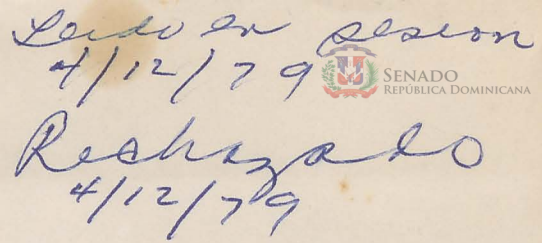 Leido en sesion
4/12/79
SENADO
REPÚBLICA DOMINICANA
Rechazado
4/12/79